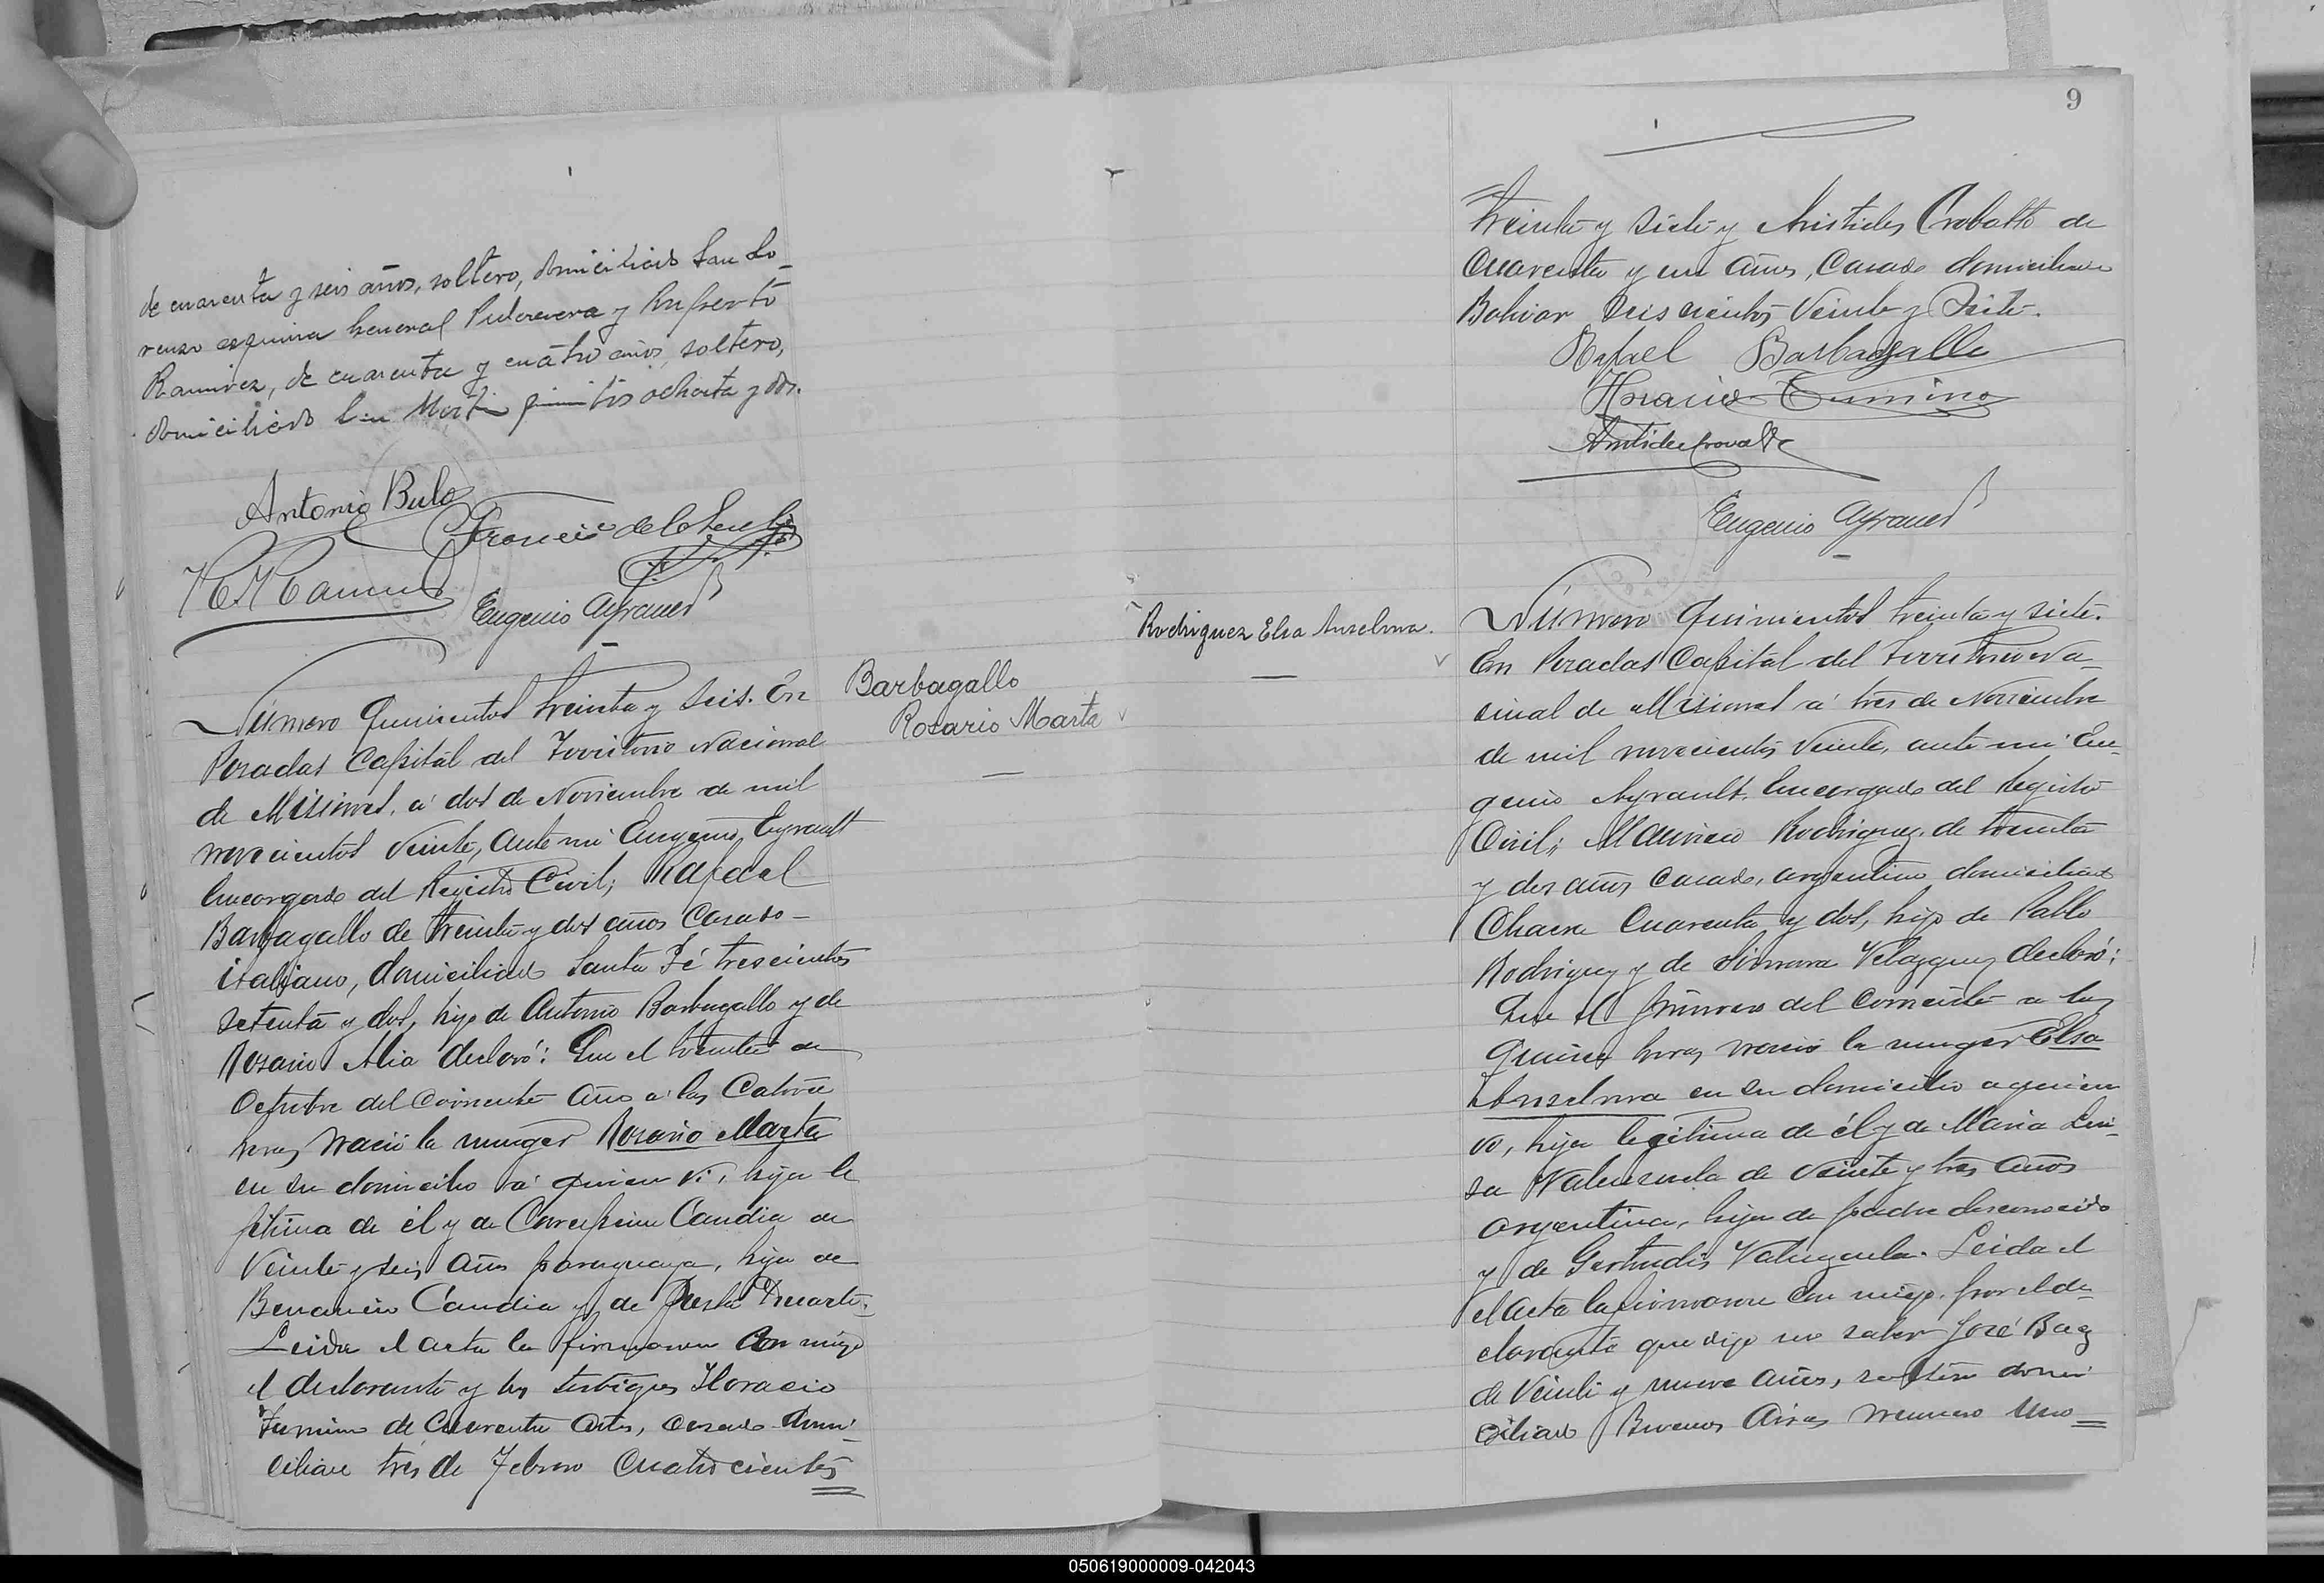 de cuarenta y seis años, soltero, domiciliado San Lo-
renzo esquina General y
Ramirez, de cuarenta y cuatro años, soltero,
domiciliado San Martin quinientos ochenta y dos.
Antonio Bulo
Francisco de la
Eugenio Ayrault
Número Quinientos treinta y seis. En
Posadas Capital del Territorio Nacional
de Misiones, a dos de Noviembre de mil
novecientos veinte, ante mi Eugenio Eyrault
Encargado del Registro Civil; Rafael
Barbagallo de treinta y dos años Casado
italiano, domiciliado Santa Fé trescientos
setenta y dos, hijo de Antonio Barbagallo y de
Rosario Alia declaró: Que el treinta de
Octubre del corriente año a las Catorce
horas nació la muger Rosario Marta
en su domicilio a quien vi, hija le
jitima de él y de Candia de
Veinte y seis años paraguaya, hija de
Candia y de Duarte.
Leida el acta la firmaron con migo
el declarante y los testigos Horacio
de Cuarenta años, casado domi-
ciliado tres de Febrero Cuatrocientos
Barbagallo
Rosario Marta
Rodriguez Elsa Anselma.
9
treinta y siete y Aristides Crobatto de
Cuarenta y un años, Casado domiciliado
Bolivar Seiscientos Veinte y Siete.
Rafael Barbagallo
Horacio
Eugenio Ayrault
Número Quinientos treinta y siete.
En Posadas Capital del Territorio Na-
cional de Misiones a tres de Noviembre
de mil novecientos veinte, ante mi Eu-
genio Ayrault. Encargado del Registro
Civil; Mauricio Rodriguez, de treinta
y dos años Casado, argentino domiciliado
Chacra Cuarenta y dos, hijo de Pablo
Rodriguez y de Velazquez declaró:
Que el primero del corriente a las
Quince horas nació la muger Elsa
Anselma en su domicilio a quien
vi, hija legitima de él y de Maria Lui-
sa Valenzuela de veinte y tres años
argentina, hija de padre desconocido
y de Gertrudis Valenzuela. Leida el
el acta la firmaron con migo, por el de-
clarante que dijo no saber José Baez
de Veinte y nueve años, soltero domi
ciliado Buenos Aires numero Uno
050619000009-042043